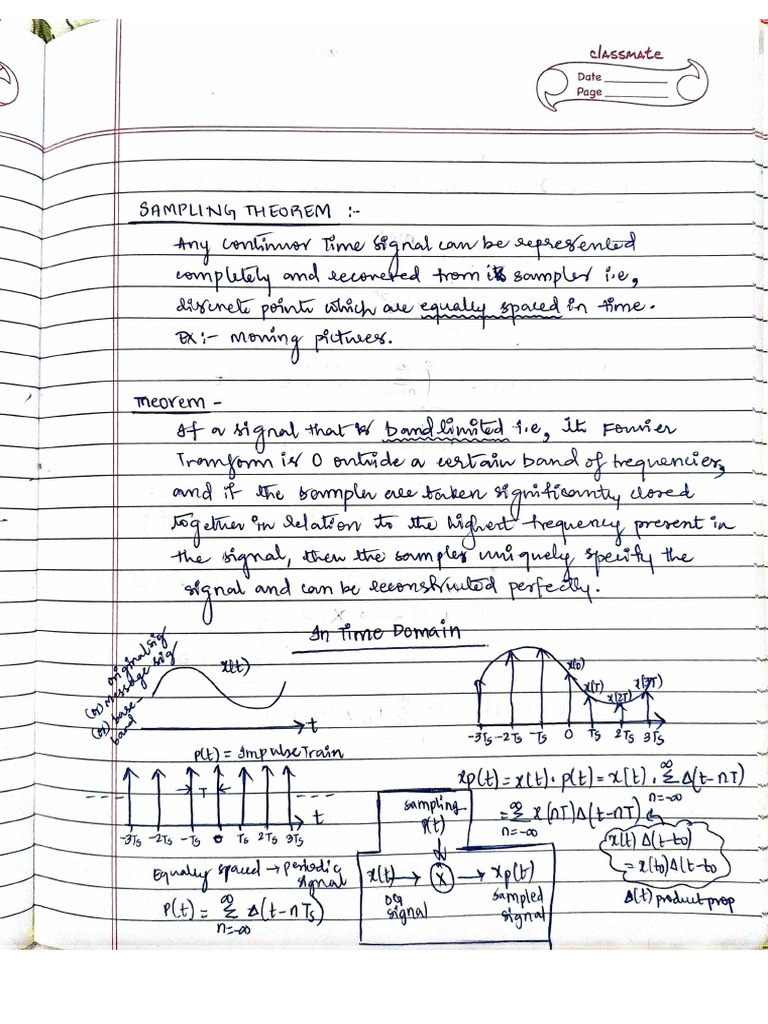 classmate
Date
Page
SAMPLING THEOREM :-
Any continuor Time signal can be represented
completely and recovered from its samples i.e,
discrete points which are equally spaced in time.
EX :- Moving pictures.
Theorem -
If a signal that is bandlimited i.e, its Fourier
Transform is 0 outside a certain band of frequencies,
and if the samples are taken significantly closed
together in relation to the highest frequency present in
the signal, then the samples uniquely specify the
signal and can be reconstructed perfectly.
In Time Domain
original sig
(or) message sig
(or) base-
band
x(t)
t
x(0)
x(T)
x(2T)
x(3T)
-3Ts -2Ts -Ts 0 Ts 2Ts 3Ts
p(t) = Impulse Train
T
t
-3Ts -2Ts -Ts 0 Ts 2Ts 3Ts
Equally spaced → periodic
signal
P(t) = ∞Σn=-∞ Δ(t-nTs)
xp(t) = x(t) · p(t) = x(t) · ∞Σn=-∞ Δ(t-nT)
= ∞Σn=-∞ x(nT)Δ(t-nT)
x(t) Δ(t-to)
= x(to)Δ(t-to
Δ(t) product prop
sampling
P(t)
x(t) → X → xp(t)
OG
signal
sampled
signal